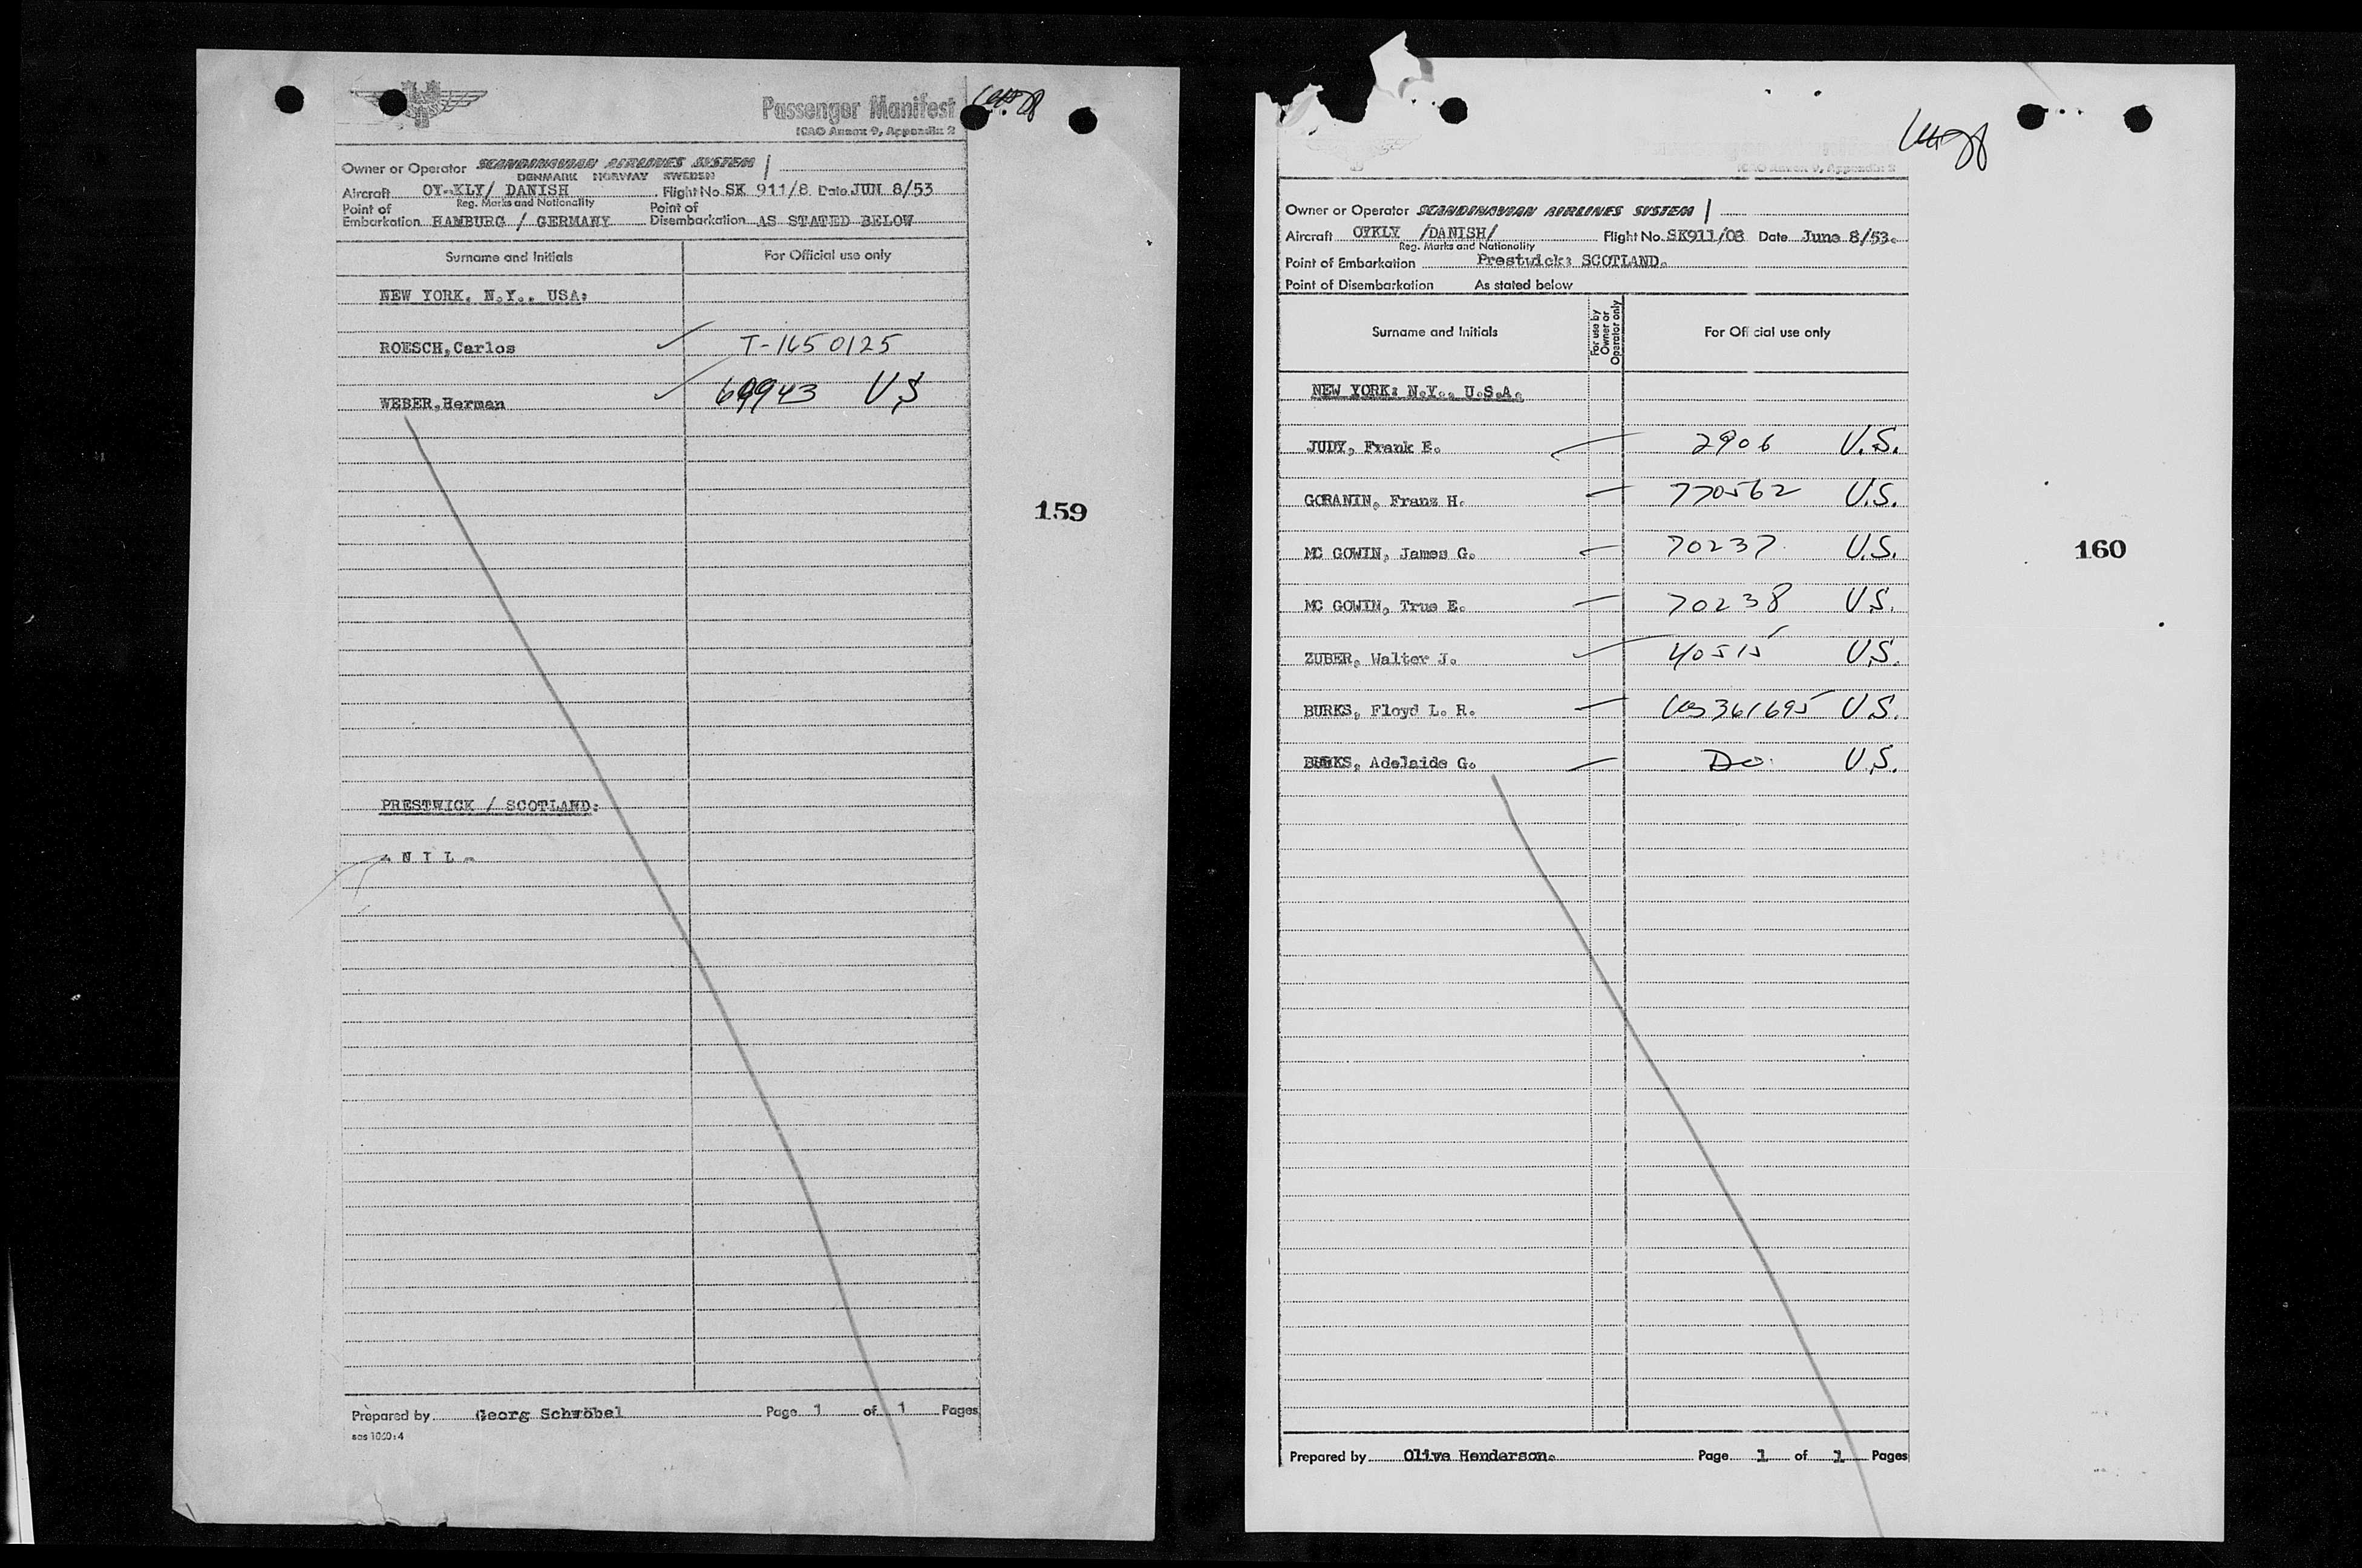 Passenger Manifest
ICAO Annex 9, Appendix 2
Owner or Operator SCANDINAVIAN AIRLINES SYSTEM
DENMARK NORWAY SWEDEN
Aircraft OY-KLY/ DANISH Flight No. SK 911/8 Date JUN 8/53
Reg. Marks and Nationality
Point of Embarkation HAMBURG / GERMANY Point of Disembarkation AS STATED BELOW
Surname and Initials For Official use only
NEW YORK, N.Y., USA:
ROESCH,Carlos T-1650125
WEBER,Herman 69943 US
159
PRESTWICK / SCOTLAND:
- N I L -
Prepared by Georg Schwöbel Page 1 of 1 Pages
sas 1060:4
ICAO Annex 9, Appendix 2
Owner or Operator SCANDINAVIAN AIRLINES SYSTEM
Aircraft OYKLY /DANISH/ Flight No. SK911/08 Date June 8/53.
Reg. Marks and Nationality
Point of Embarkation Prestwick: SCOTLAND.
Point of Disembarkation As stated below
Surname and Initials For use by Owner or Operator only For Official use only
NEW YORK: N.Y., U.S.A.
JUDY, Frank E. 2906 U.S.
GORANIN, Franz H. 770562 U.S.
MC GOWIN, James G. 70237 U.S.
MC GOWIN, True E. 70238 U.S.
ZUBER, Walter J. 40515 U.S.
BURKS, Floyd L. R. 361695 U.S.
BURKS, Adelaide G. Do. U.S.
160
Prepared by Olive Henderson. Page 1 of 1 Pages